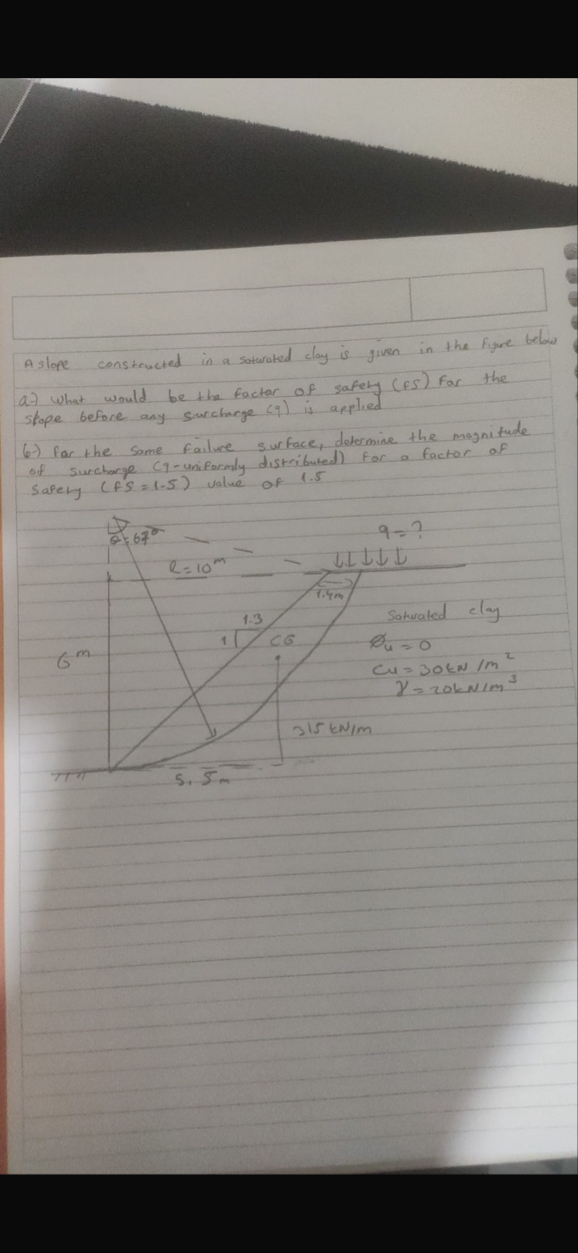 A slope constructed in a saturated clay is given in the figure below
a.) What would be the factor of safety (FS) for the
slope before any surcharge (q) is applied
b.) for the same failure surface, determine the magnitude
of surcharge (q-uniformly distributed) for a factor of
safety (FS=1.5) value of 1.5
θ=67°
q=?
R=10m
1.4m
1.3
1
CG
Saturated clay
Øu=0
Cu=30kN/m²
γ=20kN/m³
6m
315 kN/m
5.5m